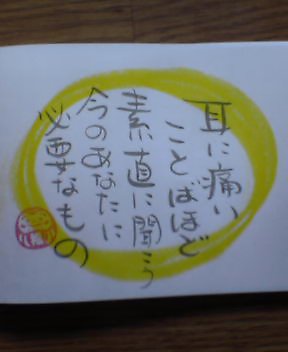 耳に痛い
ことばほど
素直に聞こう
今のあなたに
必要なもの